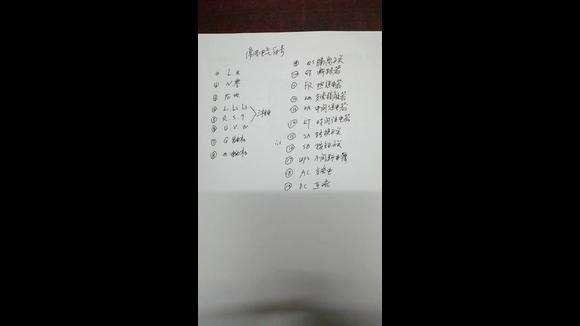 常用电气符号
① L 火
② N 零
③ PE 地
④ L1 L2 L3
⑤ R.S.T 三相电
⑥ U.V.W
⑦ G 发电机
⑧ M 电动机
⑨ QS 隔离开关
⑩ QF 断路器
⑪ FR 热继电器
⑫ KM 交流接触器
⑬ KA 中间继电器
⑭ KT 时间继电器
⑮ SA 转换开关
⑯ SB 按钮开关
⑰ UPS 不间断电源
⑱ AC 交流电
⑲ DC 直流